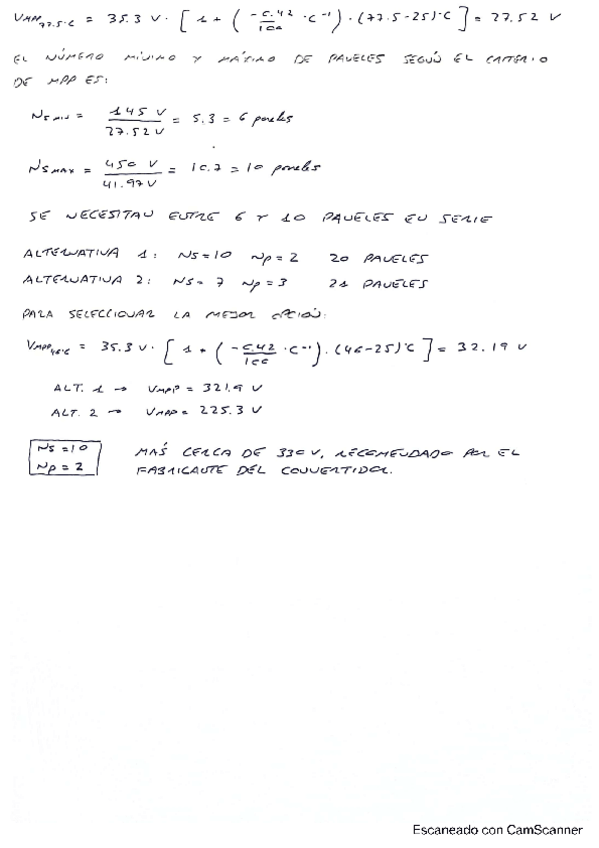 VMPP77.5°C = 35.3 V · [ 1 + ( -0.42/100 · °C⁻¹ ) · (77.5-25)°C ] = 27.52 V
EL NÚMERO MÍNIMO Y MÁXIMO DE PANELES SEGÚN EL CRITERIO
DE MPP ES:
NS MIN = 145 V / 27.52 V = 5.3 = 6 paneles
NS MAX = 450 V / 41.97 V = 10.7 = 10 paneles
SE NECESITAN ENTRE 6 Y 10 PANELES EN SERIE
ALTERNATIVA 1: NS=10 NP=2 20 PANELES
ALTERNATIVA 2: NS=7 NP=3 21 PANELES
PARA SELECCIONAR LA MEJOR OPCIÓN:
VMPP46°C = 35.3 V · [ 1 + ( -0.42/100 · °C⁻¹ ) · (46-25)°C ] = 32.19 V
ALT. 1 → VMPP = 321.9 V
ALT. 2 → VMPP = 225.3 V
NS =10
NP = 2
MÁS CERCA DE 330 V, RECOMENDADO POR EL
FABRICANTE DEL CONVERTIDOR.
Escaneado con CamScanner